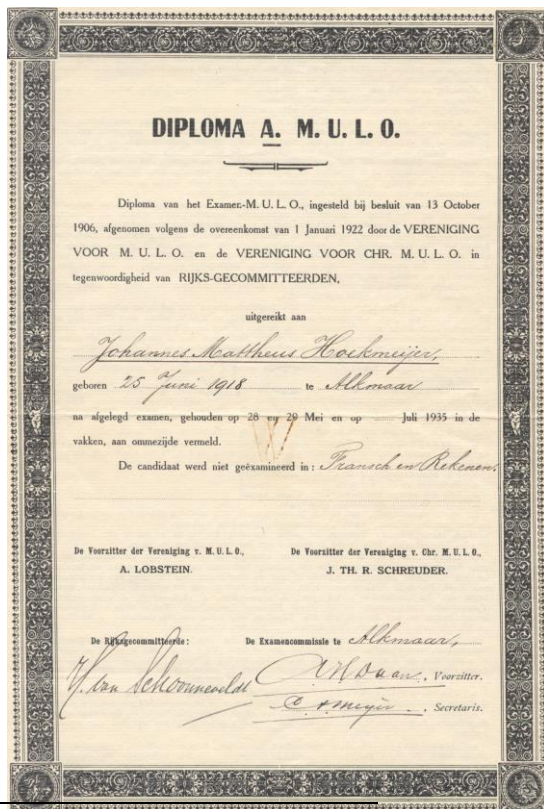 DIPLOMA A. M. U. L. O.
Diploma van het Examen-M. U. L. O., ingesteld bij besluit van 13 October
1906, afgenomen volgens de overeenkomst van 1 Januari 1922 door de VERENIGING
VOOR M. U. L. O. en de VERENIGING VOOR CHR. M. U. L. O. in
tegenwoordigheid van RIJKS-GECOMMITTEERDEN,
uitgereikt aan
Johannes Mattheus Hoekmeijer,
geboren 25 Juni 1918 te Alkmaar
na afgelegd examen, gehouden op 28 en 29 Mei en op Juli 1935 in de
vakken, aan ommezijde vermeld.
De candidaat werd niet geëxamineerd in : Fransch en Rekenen.
De Voorzitter der Vereniging v. M. U. L. O., De Voorzitter der Vereniging v. Chr. M. U. L. O.,
A. LOBSTEIN. J. TH. R. SCHREUDER.
De Rijksgecommitteerde : De Examencommissie te Alkmaar,
H. van Schoonneveldt Voorzitter.
Secretaris.